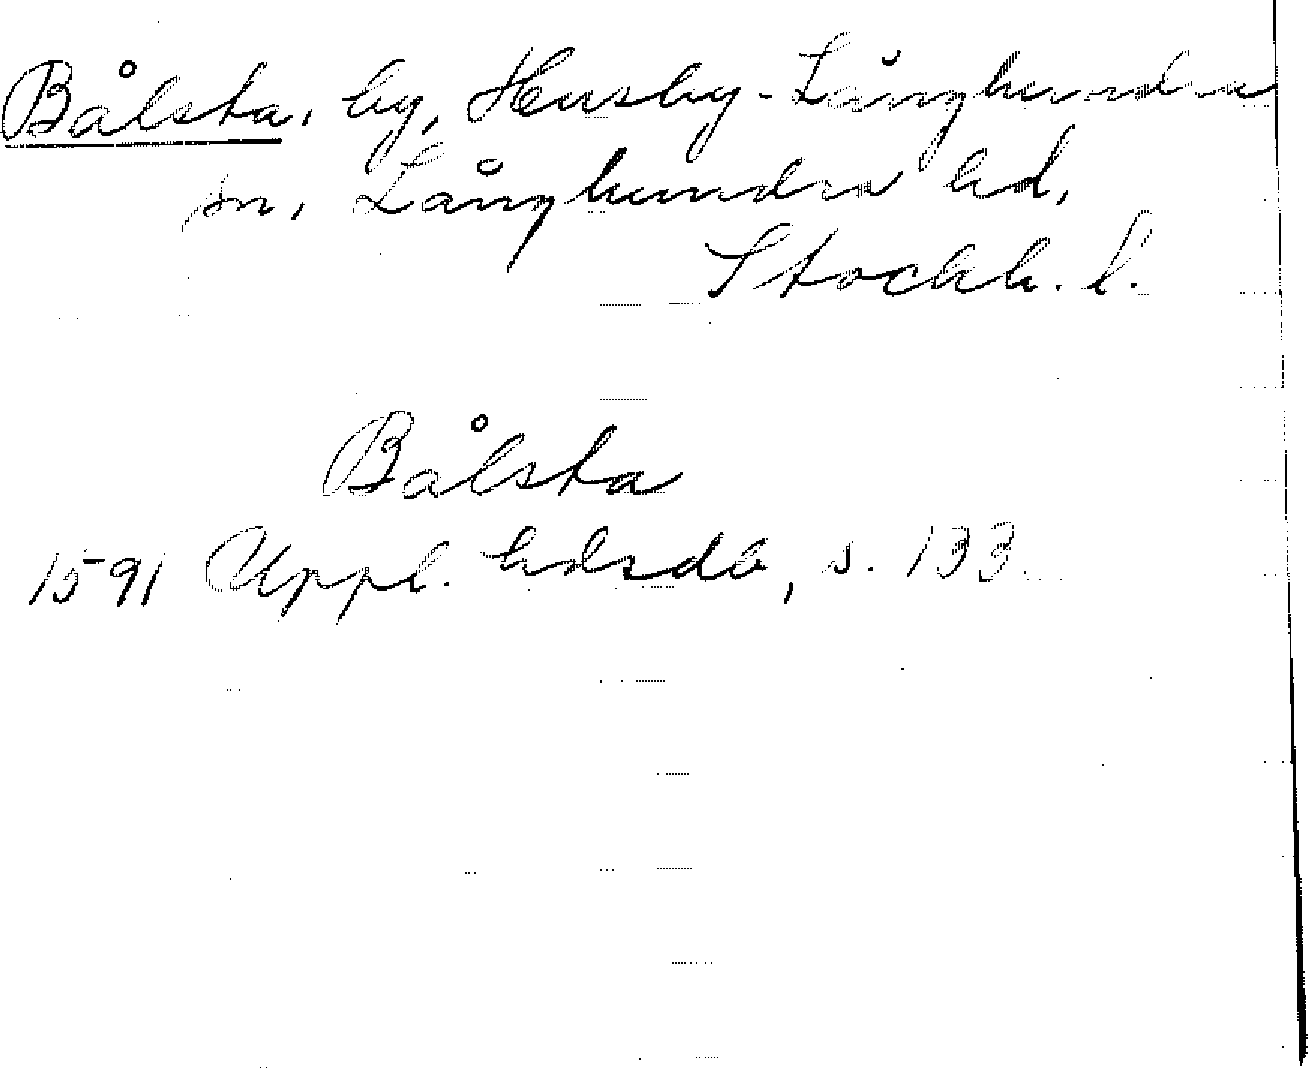 Bålsta, by, Husby-Långhundra
sn, Långhundra hd,
Stockh. l.
Bålsta
1591 Uppl. ldsdb, s. 133